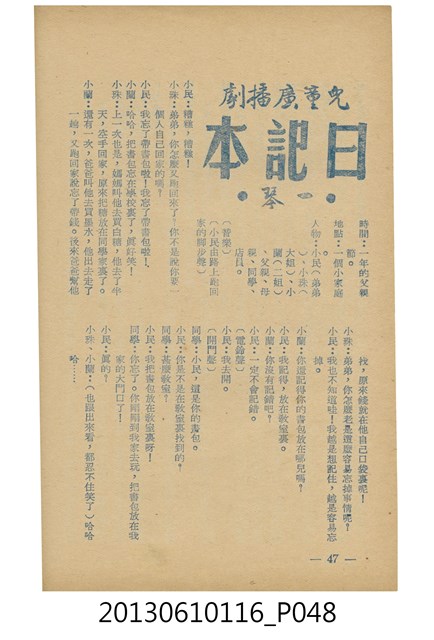 兒童廣播劇
日記本
一琴
時間：一年的父親
節。
地點：一個小家庭
人物：小民（弟弟
）、小珠（
大姐）、小
蘭（二姐）
、父親、母
親、同學、
店員。
（音樂）
（小民由路上跑回
家的腳步聲）
小民：糟糕，糟糕！
小珠：弟弟，你怎麼又跑回來了？你不是說你要一
個人自己回家的嗎？
小民：我忘了帶書包啦！我忘了帶書包啦！
小蘭：哈哈，把書包忘在學校裏了，眞好笑！
小珠：上一次也是，媽媽叫他去買白糖，他去了半
天，空手回家，原來把糖放在同學家裏了。
小蘭：還有一次，爸爸叫他去買墨水，他出去走了
一趟，又跑回家說忘了帶錢。後來爸爸幫他
找，原來錢就在他自己口袋裏呢！
小珠：弟弟，你怎麼老是這麼容易忘掉事情呢？
小民：我也不知道哇！我越是想記住，越是容易忘
掉。
小蘭：你還記得你的書包放在哪兒嗎？
小民：我記得，放在教室裏。
小蘭：你沒有記錯吧？
小民：一定不會記錯。
（電鈴聲）
小民：我去開。
（開門聲）
同學：小民，這是你的書包。
小民：你是不是在教室裏找到的？
同學：甚麼教室？
小民：我把書包放在教室裏呀！
同學：你忘了。你剛剛到我家去玩，把書包放在我
家的大門口了！
小民：眞的？
小珠、小蘭：（也跟出來看，都忍不住笑了）哈哈
哈……
— 47 —
20130610116_P048